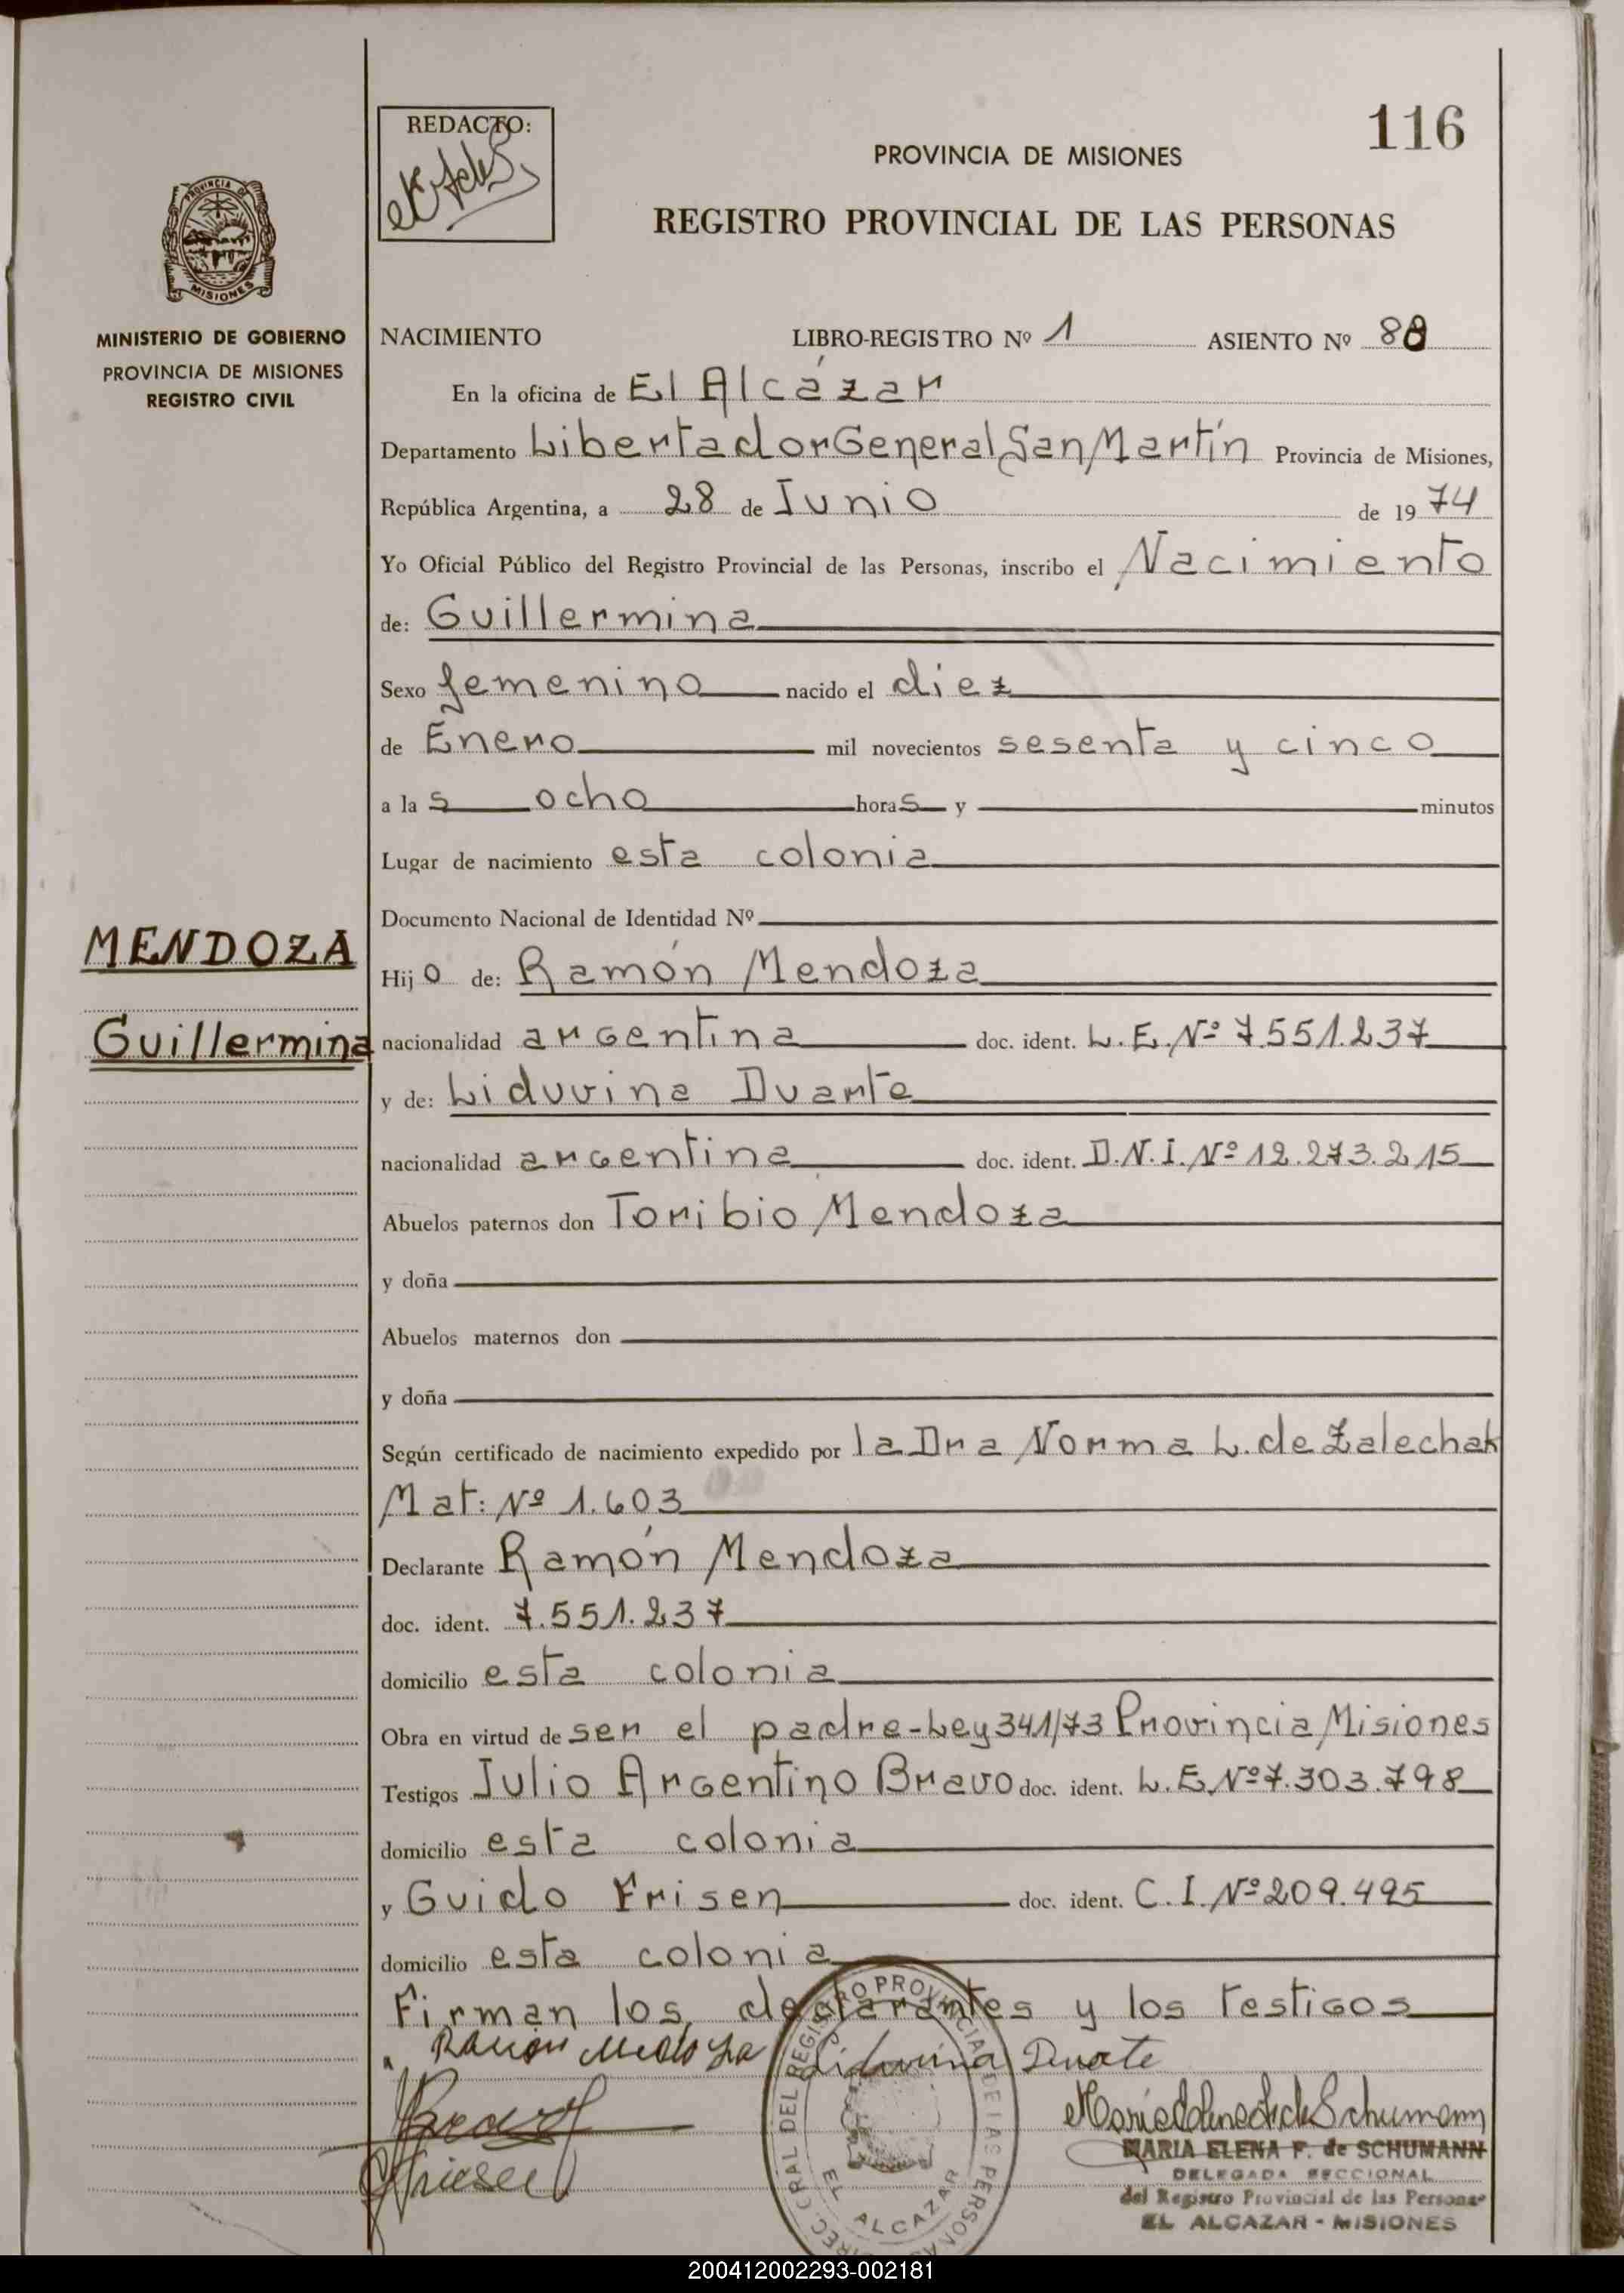 116
REDACTO:
PROVINCIA DE MISIONES
REGISTRO PROVINCIAL DE LAS PERSONAS
PROVINCIA DE
MISIONES
MINISTERIO DE GOBIERNO
PROVINCIA DE MISIONES
REGISTRO CIVIL
NACIMIENTO LIBRO-REGISTRO Nº 1 ASIENTO Nº 88
En la oficina de El Alcázar
Departamento Libertador General San Martín Provincia de Misiones,
República Argentina, a 28 de Junio de 1974
Yo Oficial Público del Registro Provincial de las Personas, inscribo el Nacimiento
de: Guillermina
Sexo femenino nacido el diez
de Enero mil novecientos sesenta y cinco
a las ocho horas y minutos
Lugar de nacimiento esta colonia
Documento Nacional de Identidad Nº
MENDOZA
Guillermina
Hijo de: Ramón Mendoza
nacionalidad argentina doc. ident. L.E.Nº 7.551.237
y de: Liduvina Duarte
nacionalidad argentina doc. ident. D.N.I.Nº 12.273.215
Abuelos paternos don Toribio Mendoza
y doña
Abuelos maternos don
y doña
Según certificado de nacimiento expedido por la Dra Norma L. de Zalechak
Mat: Nº 1.603
Declarante Ramón Mendoza
doc. ident. 7.551.237
domicilio esta colonia
Obra en virtud de ser el padre-Ley 341/73 Provincia Misiones
Testigos Julio Argentino Bravo doc. ident. L.E.Nº 7.303.798
domicilio esta colonia
y Guido Frisen doc. ident. C.I.Nº 209.495
domicilio esta colonia
Firman los declarantes y los testigos
Liduvina Duarte
DIREC. GRAL DEL REGISTRO PROVINCIAL DE LAS PERSONAS
EL ALCAZAR
MARIA ELENA F. de SCHUMANN
DELEGADA SECCIONAL
del Registro Provincial de las Personas
EL ALCAZAR - MISIONES
200412002293-002181